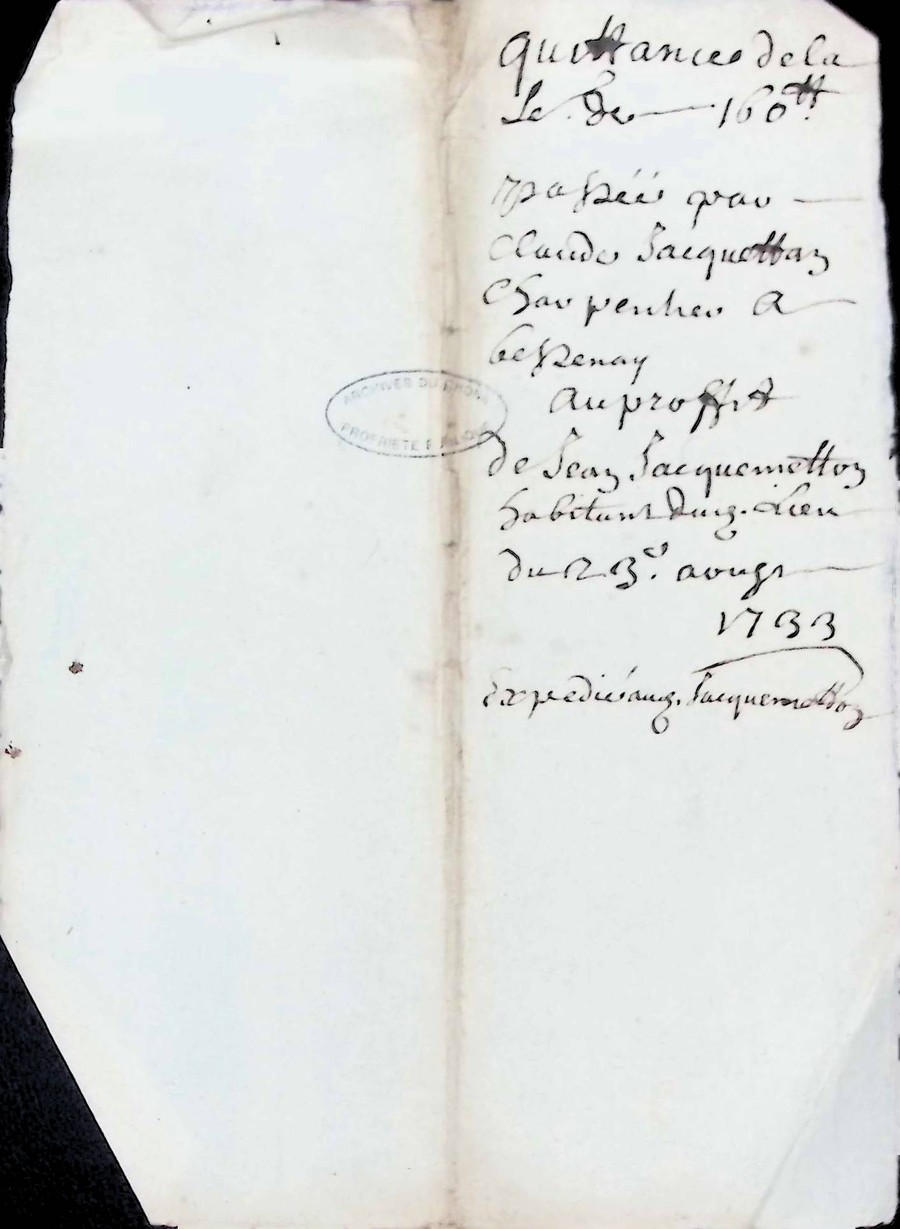 quittance de la
Se. de 160tt.
passéé par
Claude Jacquettan
Charpentier A
bessenay
Au proffit
de Jean Jacquemetton
habitant dud. Lieu
du 23e. aougt
1733
Expedié aud. Jacquemetton
ARCHIVES DU RHONE
PROPRIETE PUBLIQUE